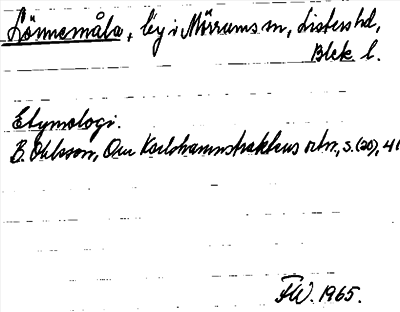 Lönnemåla, by i Mörrums sn, Listers hd,
Blek l.
Etymologi.
B. Ohlsson, Om Karlshamnstraktens ortn, s. (20), 41
FW. 1965.